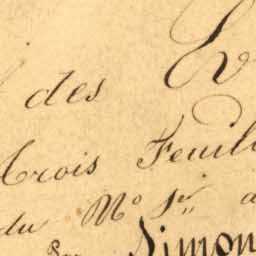 des
trois Feuil
du Mo Sr
Simon